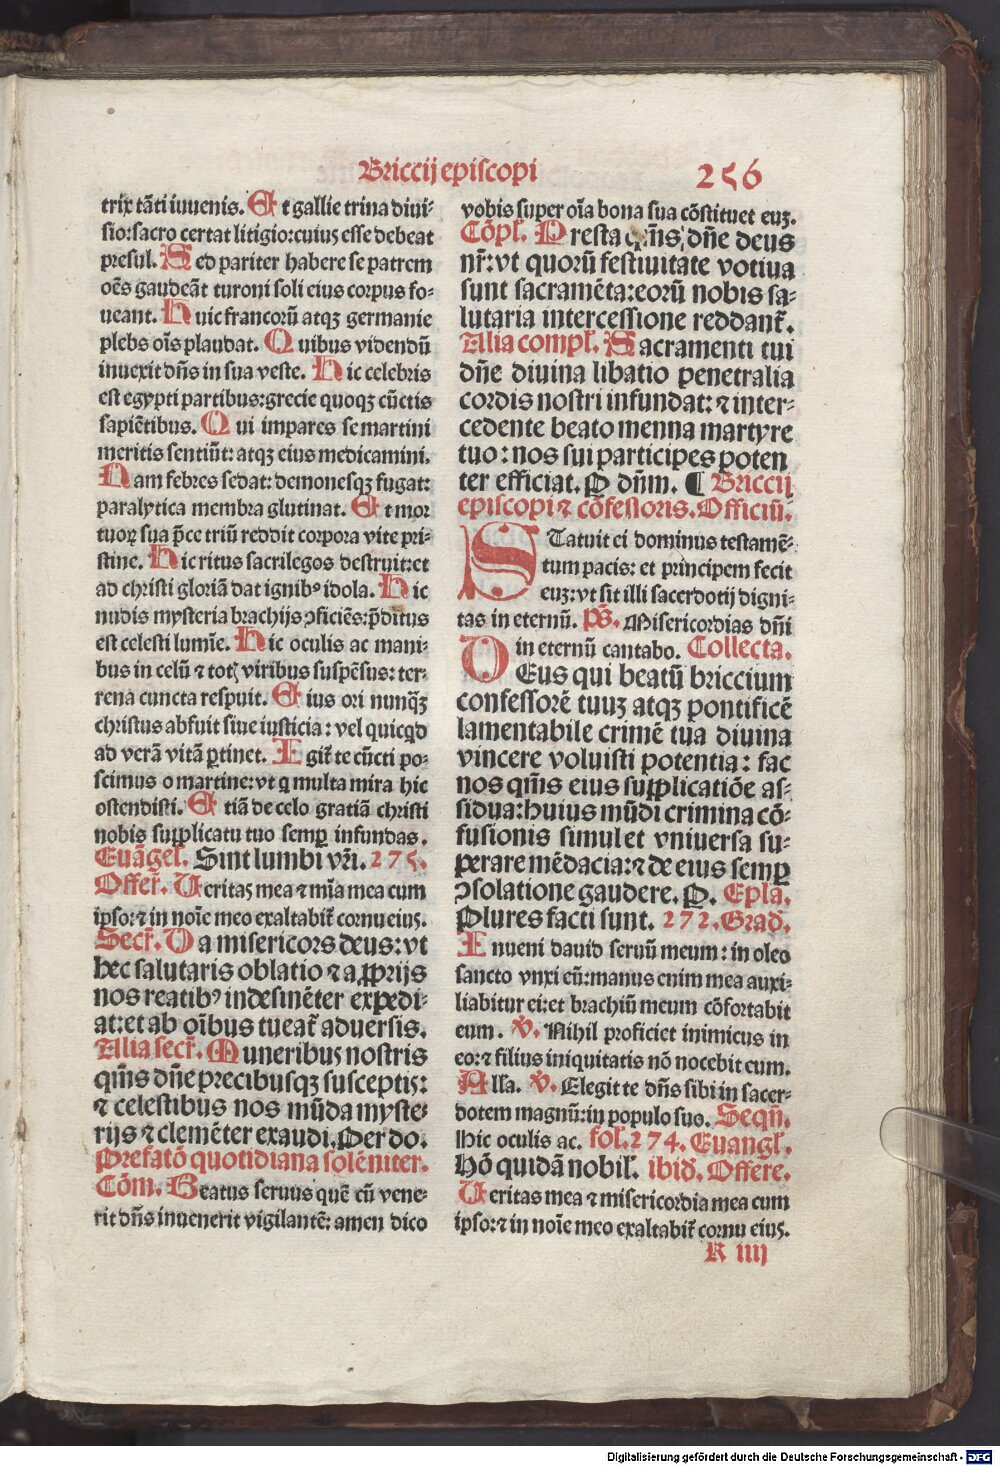 Briccij episcopi
256
trix tāti iuuenis. Et gallie trina diui⸗
sio: sacro certat litigio: cuius esse debeat
presul. Sed pariter habere se patrem
oēs gaudeāt turoni soli eius corpus fo⸗
ueant. Huic francorū atqꝫ germanie
plebs oīs plaudat. Quibus videndū
inuexit dn̄s in sua veste. Hic celebris
est egypti partibus: grecie quoqꝫ cūctis
sapiētibus. Qui impares se martini
meritis sentiūt: atqꝫ eius medicamini.
Nam febres sedat: demonesqꝫ fugat:
paralytica membra glutinat. Et mor
tuoꝝ sua p̄ce triū reddit corpora vite pri⸗
stine. Hic ritus sacrilegos destruit: et
ad christi gloriā dat ignibꝰ idola. Hic
nudis mysteria brachijs ꝯficiēs: p̄ditus
est celesti lumīe. Hic oculis ac mani⸗
bus in celū ⁊ totꝭ viribus suspēsus: ter⸗
rena cuncta respuit. Eius ori nunqꝫ̄
christus abfuit siue iusticia: vel quicqͥd
ad verā vitā ꝑtinet. Igit̄ te cūcti po⸗
scimus o martine: vt q multa mira hic
ostendisti. Etiā de celo gratiā christi
nobis supplicatu tuo semꝑ infundas.
Euāgel̄. Sint lumbi vr̄i. 275.
Offer̄. Ueritas mea ⁊ mīa mea cum
ipso: ⁊ in noīe meo exaltabit̄ cornu eius.
Secr̄. Da misericors deus: vt
hec salutaris oblatio ⁊ a ꝓprijs
nos reatibꝰ indesinēter expedi⸗
at: et ab oībus tueat̄ aduersis.
Alia secr̄. Muneribus nostris
qm̄s dn̄e precibusqꝫ susceptis:
⁊ celestibus nos mūda myste⸗
rijs ⁊ clemēter exaudi. Per do.
Prefatō quotidiana solēniter.
Cōm. Beatus seruus quē cū vene⸗
rit dn̄s inuenerit vigilantē: amen dico
vobis super oīa bona sua cōstituet euꝫ.
Cōpl̄. Presta qm̄s dn̄e deus
nr̄: vt quorū festiuitate votiua
sunt sacramēta: eorū nobis sa⸗
lutaria intercessione reddant̄.
Alia compl̄. Sacramenti tui
dn̄e diuina libatio penetralia
cordis nostri infundat: ⁊ inter⸗
cedente beato menna martyre
tuo: nos sui participes poten
ter efficiat. P dn̄m. ¶ Briccij
episcopi ⁊ cōfessoris. Officiū.
STatuit ei dominus testamē⸗
tum pacis: et principem fecit
euꝫ: vt sit illi sacerdotij digni⸗
tas in eternū. Ps̄. Misericordias dn̄i
in eternū cantabo. Collecta.
DEus qui beatū briccium
confessorē tuuꝫ atqꝫ pontificē
lamentabile crimē tua diuina
vincere voluisti potentia: fac
nos qm̄s eius supplicatiōe as⸗
sidua: huius mūdi crimina cō⸗
fusionis simul et vniuersa su⸗
perare mēdacia: ⁊ de eius semꝑ
ꝯsolatione gaudere. P. Epl̄a.
Plures facti sunt. 272. Grad̄.
Inueni dauid seruū meum: in oleo
sancto vnxi eū: manus enim mea auxi⸗
liabitur ei: et brachiū meum cōfortabit
eum. V̄. Nihil proficiet inimicus in
eo: ⁊ filius iniquitatis nō nocebit eum.
Alla. V̄. Elegit te dn̄s sibi in sacer⸗
dotem magnū: in populo suo. Seqn̄.
Hic oculis ac. fol. 274. Euangl̄.
Hō quidā nobil̄. ibid̄. Offere.
Ueritas mea ⁊ misericordia mea cum
ipso: ⁊ in noīe meo exaltabit̄ cornu eius.
R iiij
Digitalisierung gefördert durch die Deutsche Forschungsgemeinschaft - DFG